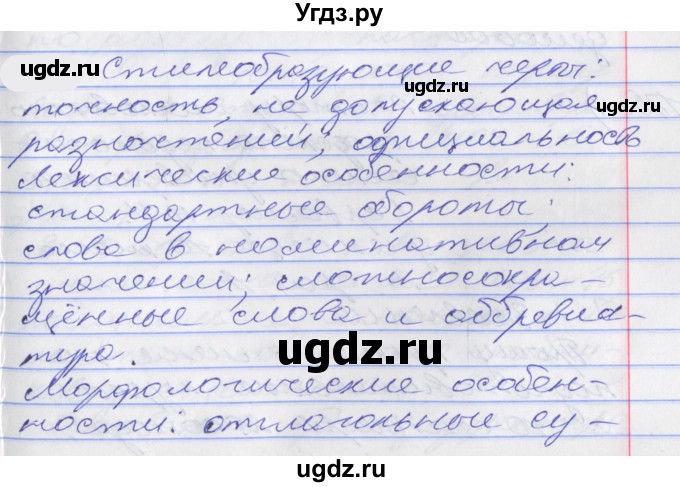 Угдз.ру
Стилеобразующие черты:
точность, не допускающая
разночтений; официальность
Лексические особенности:
стандартные обороты;
слова в номинативном
значении; сложносокра-
щённые слова и аббревиа-
тура.
Морфологические особен-
ности: отглагольные су-
ugdz.ru
ugdz.ru
ugdz.ru
ugdz.ru
ugdz.ru
ugdz.ru
ugdz.ru
ugdz.ru
ugdz.ru